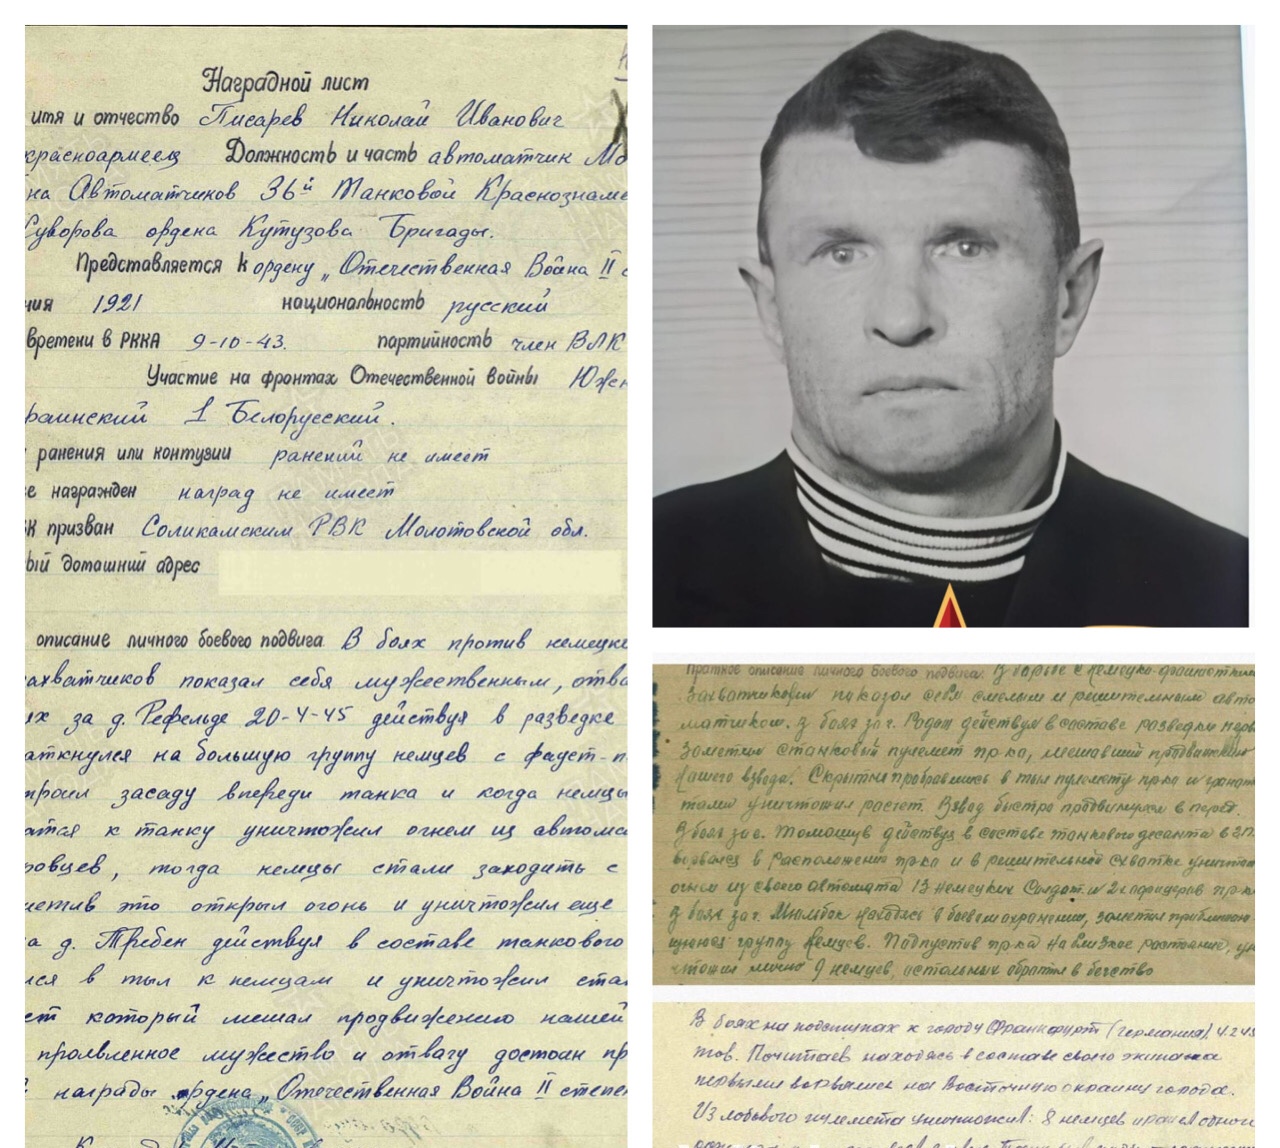 Наградной лист
имя и отчество Писарев Николай Иванович
красноармеец Должность и часть автоматчик Мо
на Автоматчиков 36й Танковой Краснознаме
Суворова ордена Кутузова Бригады.
Представляется к ордену „Отечественная Война II с
ния 1921 национальность русский
времени в РККА 9-10-43. партийность член ВЛК
Участие на фронтах Отечественной войны Южн
раинский 1 Белорусский.
ранения или контузии ранений не имеет
е награжден наград не имеет
вк призван Соликамским РВК Молотовской обл.
ый домашний адрес
описание личного боевого подвига В боях против немецки
ахватчиков показал себя мужественным, отва
ях за д. Рефельде 20-4-45 действуя в разведке
аткнулся на большую группу немцев с фауст-п
троил засаду впереди танка и когда немцы
аться к танку уничтожил огнем из автома
ровцев, тогда немцы стали заходить с
метив это открыл огонь и уничтожил еще
а д. Требен действуя в составе танкового
лся в тыл к немцам и уничтожил стан
ет который мешал продвижению нашей
проявленное мужество и отвагу достоин пр
й награды ордена „Отечественная Война II степе
Краткое описание личного боевого подвига: В борьбе с немецко-фашистким
захватчиками показал себя смелым и решительным авто
матчиком. В боях за г. Радом действуя в составе разведки перв
заметил станковый пулемет пр-ка, мешавший продвижению
нашего взвода. Скрытно пробравшись в тыл пулемету пр-ка и гранат
тами уничтожил расчет. Взвод быстро продвинулся в перед.
В боях за г. Томашув действуя в составе танкового десанта
ворвался в расположение пр-ка и в решительной схватке уничтож
огнем из своего автомата 13 немецких солдат и 2х офицеров пр-ка
В боях за г. находясь в боевом охранении, заметил приближаю
щуюся группу немцев. Подпустив пр-ка на близкое расстояние, ун
чтожил лично 9 немцев, остальных обратил в бегство
В боях на подступах к городу Франкфурт (Германия) 4.2.45
тов. Почитаев находясь в составе своего экипажа
первыми ворвались на Восточную окраину города.
Из лобового пулемета уничтожил: 8 немцев и одного